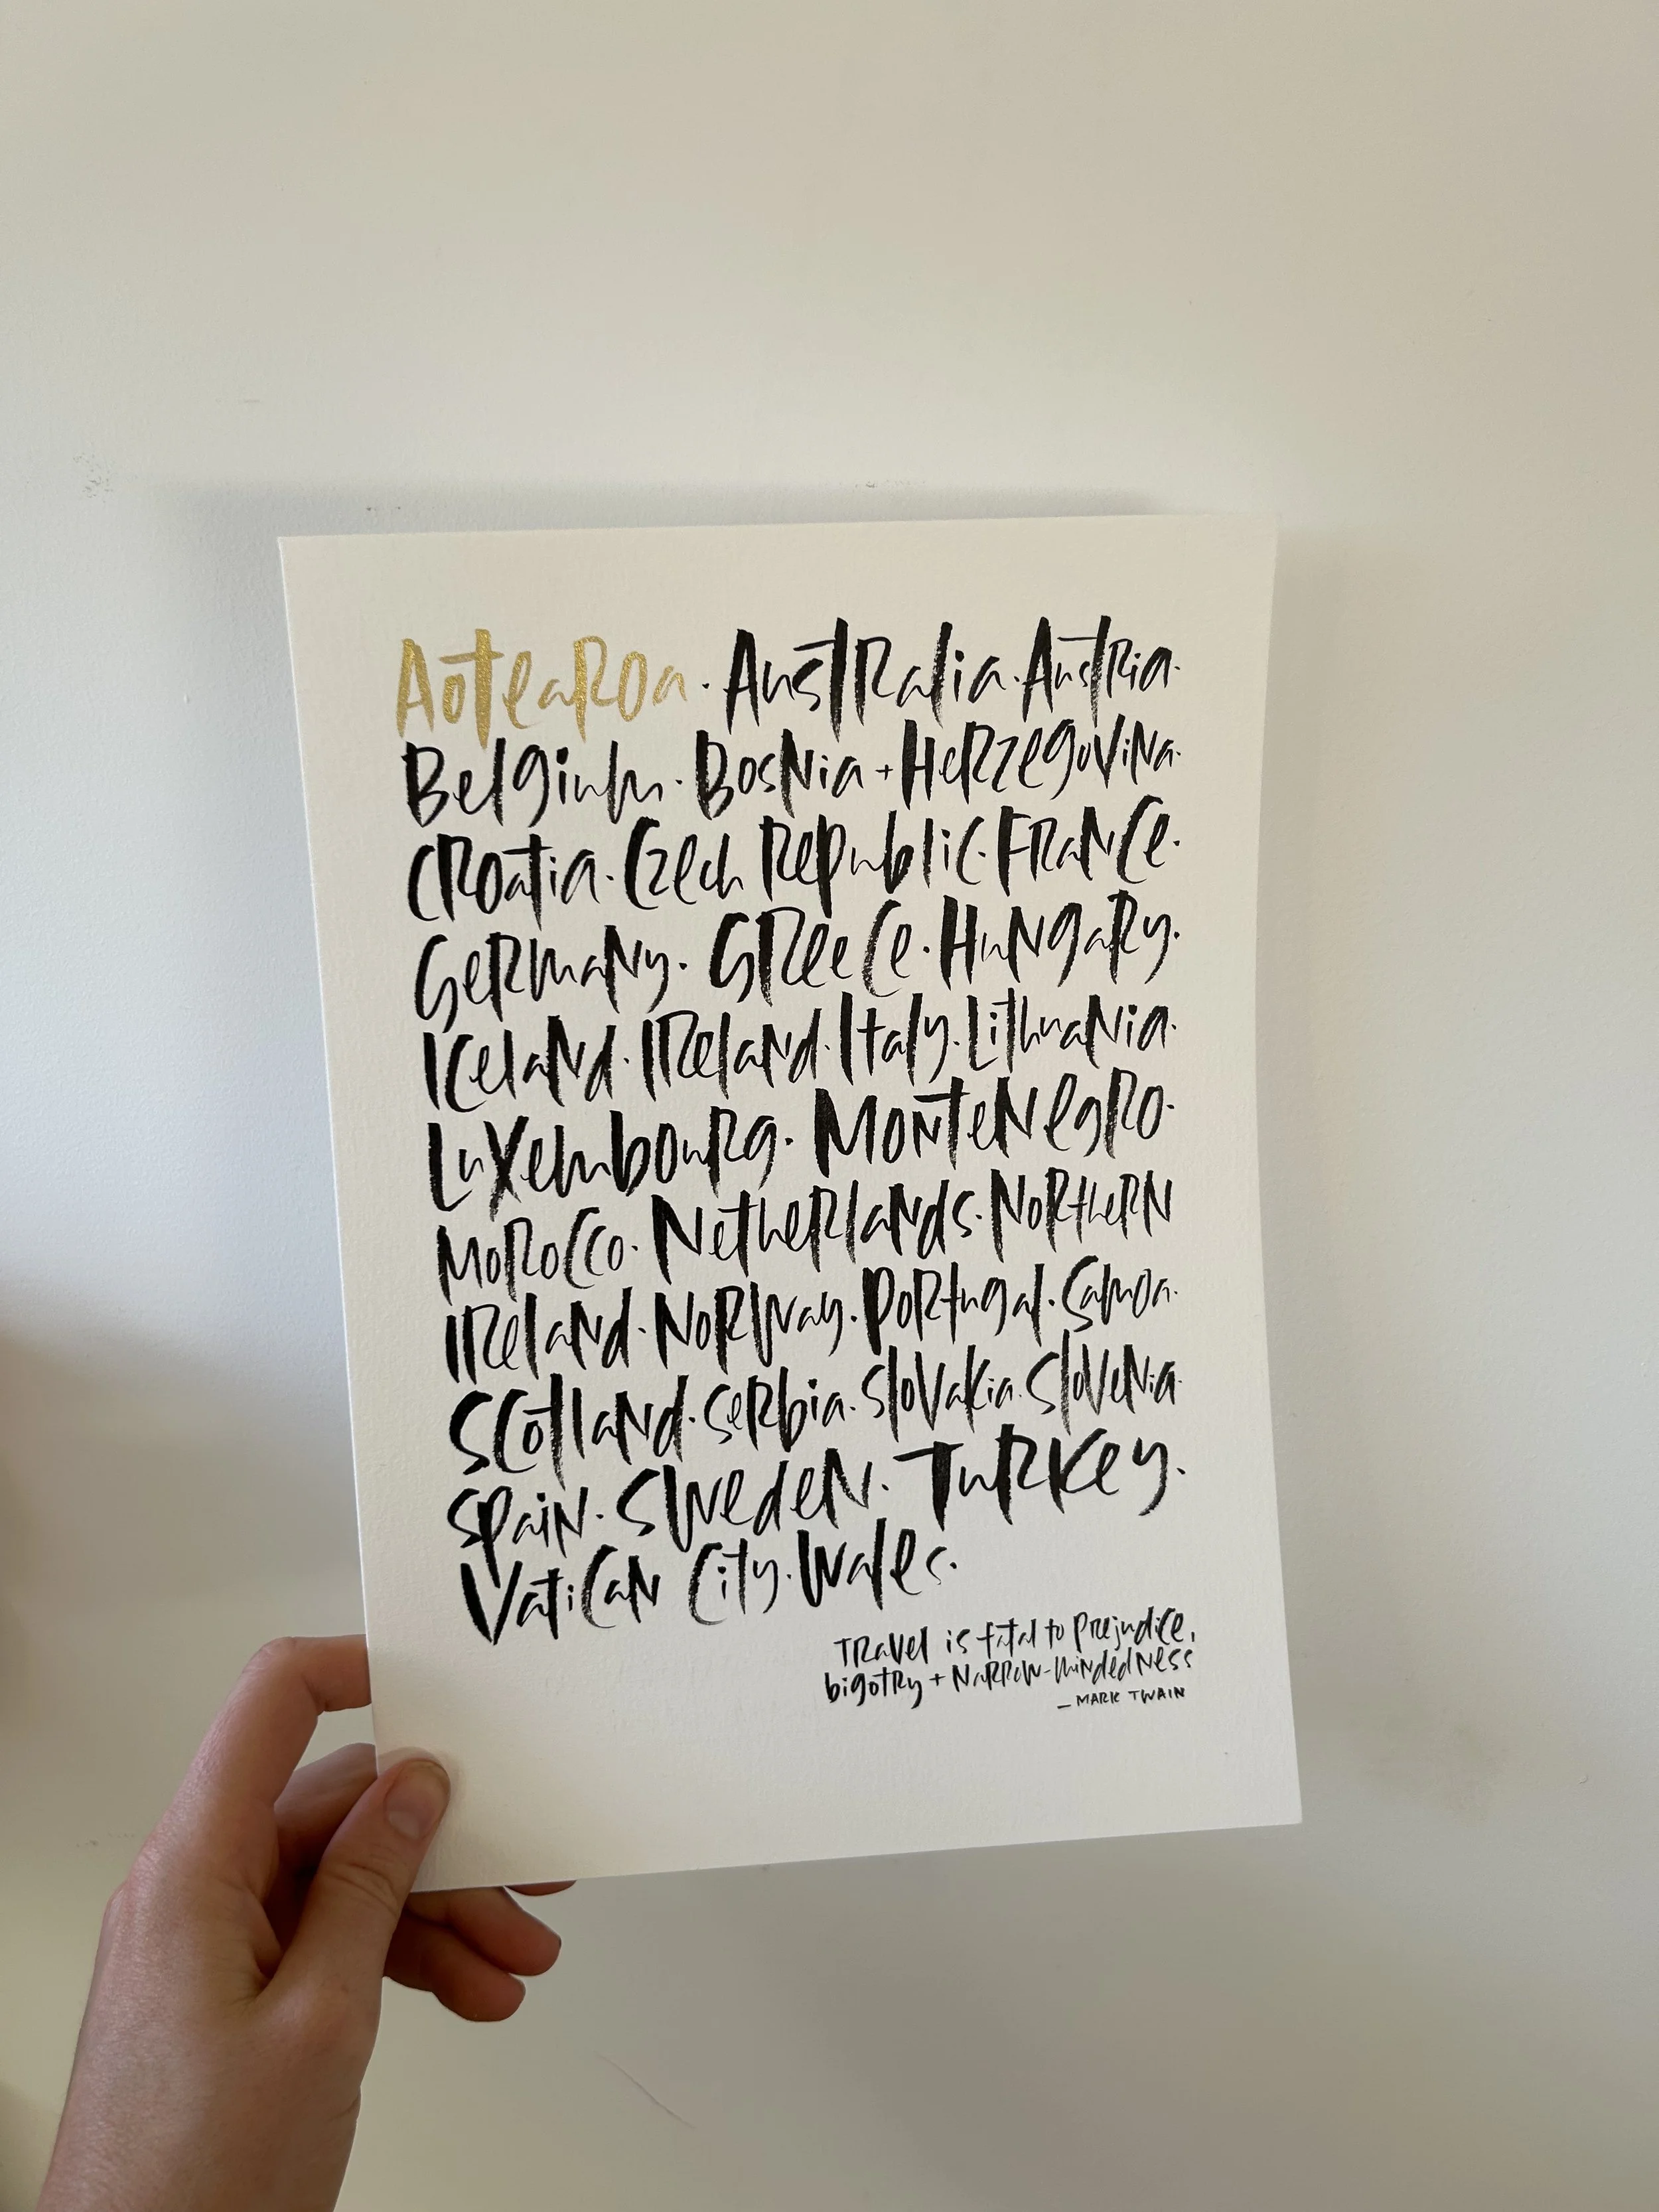 Aotearoa · Australia · Austria ·
Belgium · Bosnia + Herzegovina ·
Croatia · Czech Republic · France ·
Germany · Greece · Hungary ·
Iceland · Ireland · Italy · Lithuania ·
Luxembourg · Montenegro ·
Morocco · Netherlands · Northern
Ireland · Norway · Portugal · Samoa ·
Scotland · Serbia · Slovakia · Slovenia ·
Spain · Sweden · Turkey ·
Vatican City · Wales ·
Travel is fatal to prejudice,
bigotry + narrow-mindedness
— MARK TWAIN